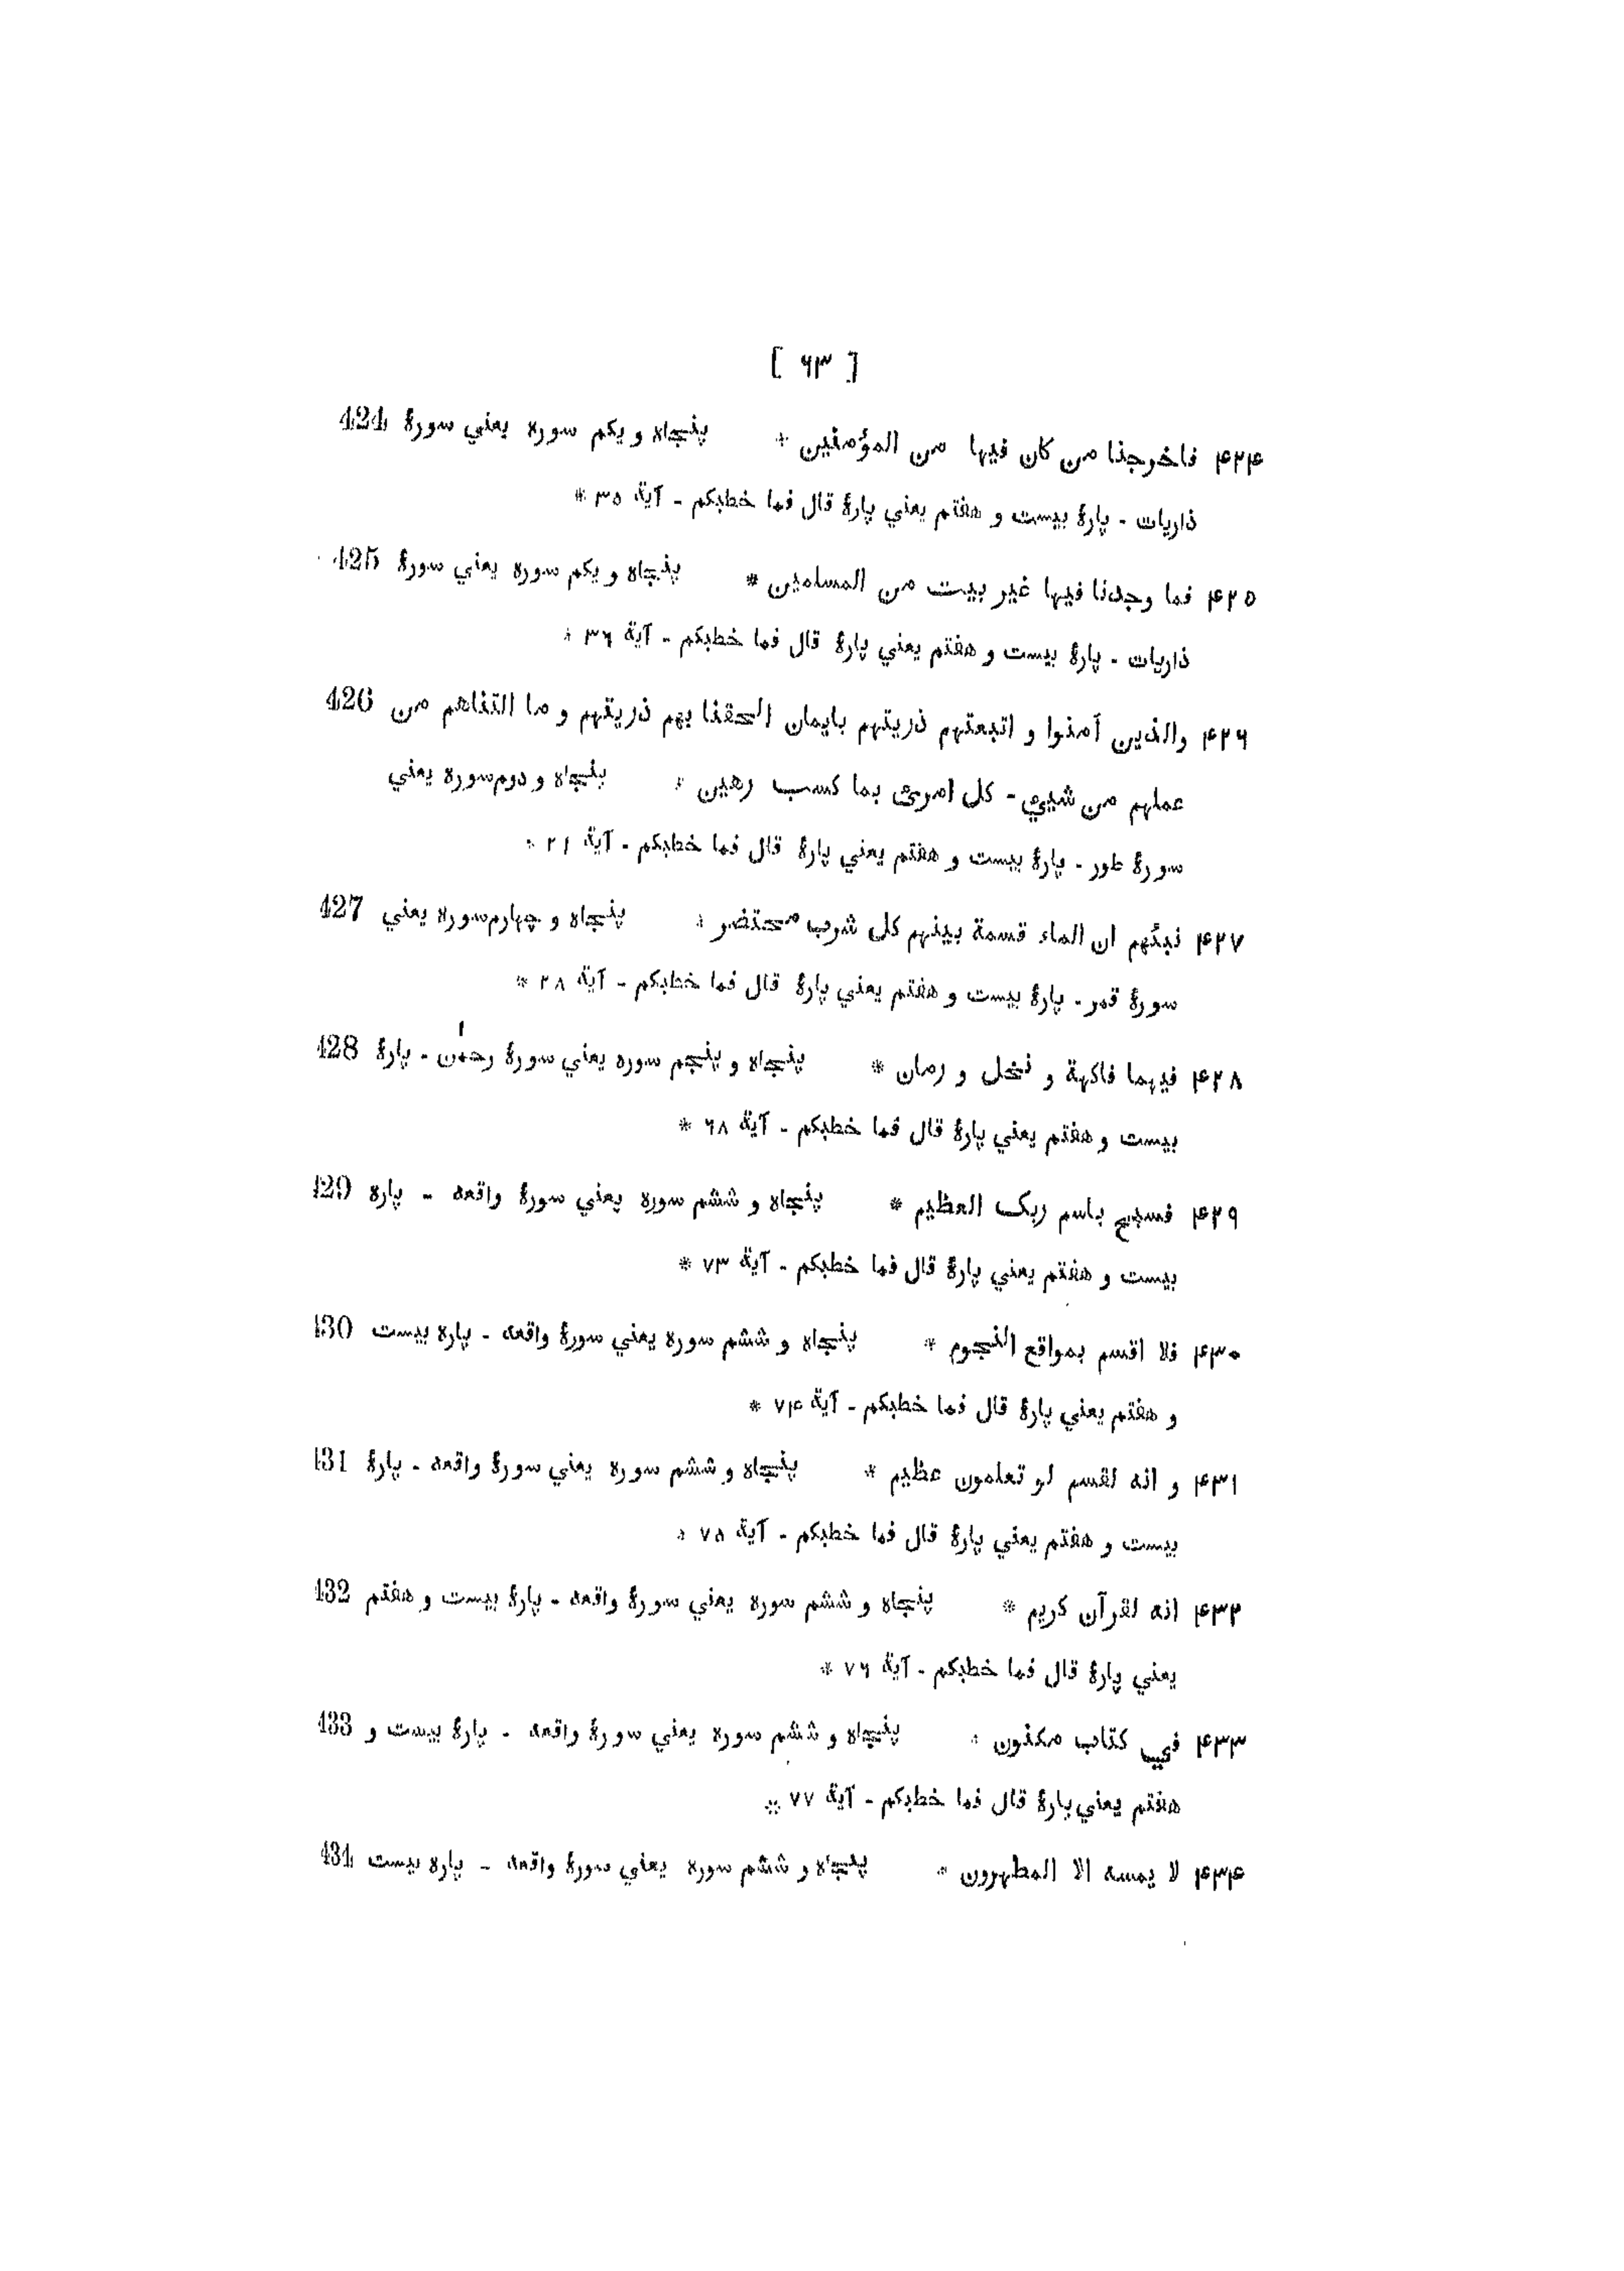 [ ۶۳ ]
۴۲۴ فاخرجنا من كان فيها من المؤمنين * پنجاه و يكم سوره يعني سورۀ 424
ذاريات - پارۀ بيست و هفتم يعني پارۀ قال فما خطبكم - آية ۳۵ *
۴۲۵ فما وجدنا فيها غير بيت من المسلمين * پنجاه و يكم سوره يعني سورۀ 425
ذاريات - پارۀ بيست و هفتم يعني پارۀ قال فما خطبكم - آية ۳۶ *
۴۲۶ والذين آمنوا و اتبعتهم ذريتهم بايمان الحقنا بهم ذريتهم و ما التناهم من 426
عملهم من شيئ - كل امرئ بما كسب رهين * پنجاه و دوم سوره يعني
سورۀ طور - پارۀ بيست و هفتم يعني پارۀ قال فما خطبكم - آية ۲۱ *
۴۲۷ نبئهم ان الماء قسمة بينهم كل شرب محتضر * پنجاه و چهارم سوره يعني 427
سورۀ قمر - پارۀ بيست و هفتم يعني پارۀ قال فما خطبكم - آية ۲۸ *
۴۲۸ فيهما فاكهة و نخل و رمان * پنجاه و پنجم سوره يعني سورۀ رحمٰن - پارۀ 428
بيست و هفتم يعني پارۀ قال فما خطبكم - آية ۶۸ *
۴۲۹ فسبح باسم ربک العظيم * پنجاه و ششم سوره يعني سورۀ واقعه - پاره 429
بيست و هفتم يعني پارۀ قال فما خطبكم - آية ۷۳ *
۴۳۰ فلا اقسم بمواقع النجوم * پنجاه و ششم سوره يعني سورۀ واقعه - پاره بيست 430
و هفتم يعني پارۀ قال فما خطبكم - آية ۷۴ *
۴۳۱ و انه لقسم لو تعلمون عظيم * پنجاه و ششم سوره يعني سورۀ واقعه - پارۀ 431
بيست و هفتم يعني پارۀ قال فما خطبكم - آية ۷۵ *
۴۳۲ انه لقرآن كريم * پنجاه و ششم سوره يعني سورۀ واقعه - پارۀ بيست و هفتم 432
يعني پارۀ قال فما خطبكم - آية ۷۶ *
۴۳۳ في كتاب مكنون * پنجاه و ششم سوره يعني سورۀ واقعه - پارۀ بيست و 433
هفتم يعني پارۀ قال فما خطبكم - آية ۷۷ *
۴۳۴ لا يمسه الا المطهرون * پنجاه و ششم سوره يعني سورۀ واقعه - پاره بيست 434